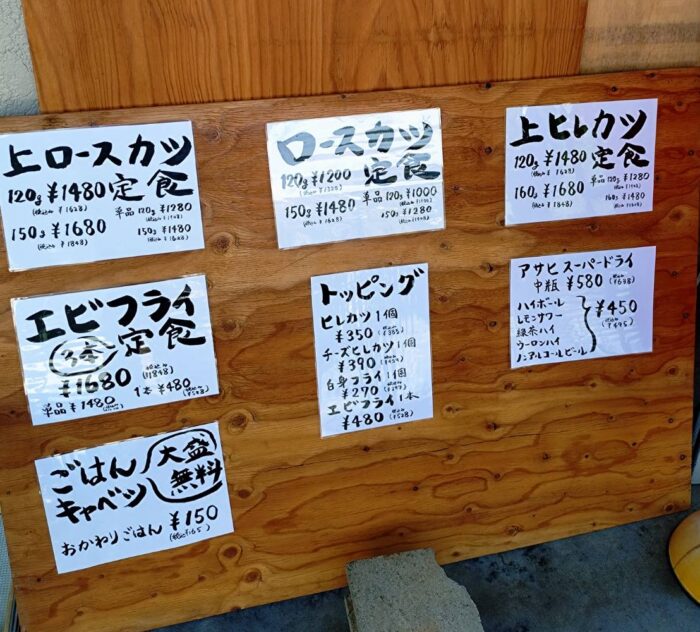 上ロースカツ
定食
120g ¥1480
(税込み ¥1628)
150g ¥1680
(税込み ¥1848)
単品 120g ¥1280
150g ¥1480
(税込み ¥1628)
ロースカツ
定食
120g ¥1200
150g ¥1480
(税込み ¥1628)
単品 120g ¥1000
150g ¥1280
上ヒレカツ
定食
120g ¥1480
(税込み ¥1628)
160g ¥1680
(税込み ¥1848)
単品 120g ¥1280
160g ¥1480
エビフライ
3本
定食
¥1680
税込み
(¥1848)
単品 ¥1480
1本 ¥480
税込み
(¥528)
トッピング
ヒレカツ 1個
¥350 税込み (¥385)
チーズヒレカツ 1個
¥390
白身フライ 1個
¥270
エビフライ 1本
¥480 税込み (¥528)
アサヒスーパードライ
中瓶 ¥580 税込み (¥638)
ハイボール
レモンサワー
緑茶ハイ
ウーロンハイ
ノンアルコールビール
¥450
税込み
(¥495)
ごはん
キャベツ
大盛
無料
おかわりごはん ¥150
(税込 ¥165)